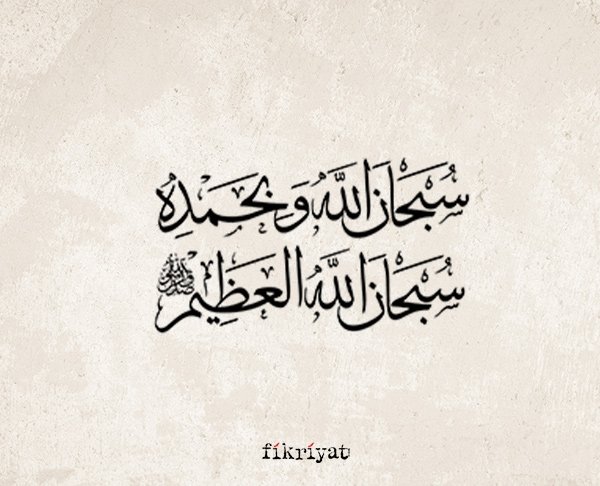 سُبْحَانَ اللَّهِ وَبِحَمْدِهِ
سُبْحَانَ اللَّهِ الْعَظِيمِ
fikriyat